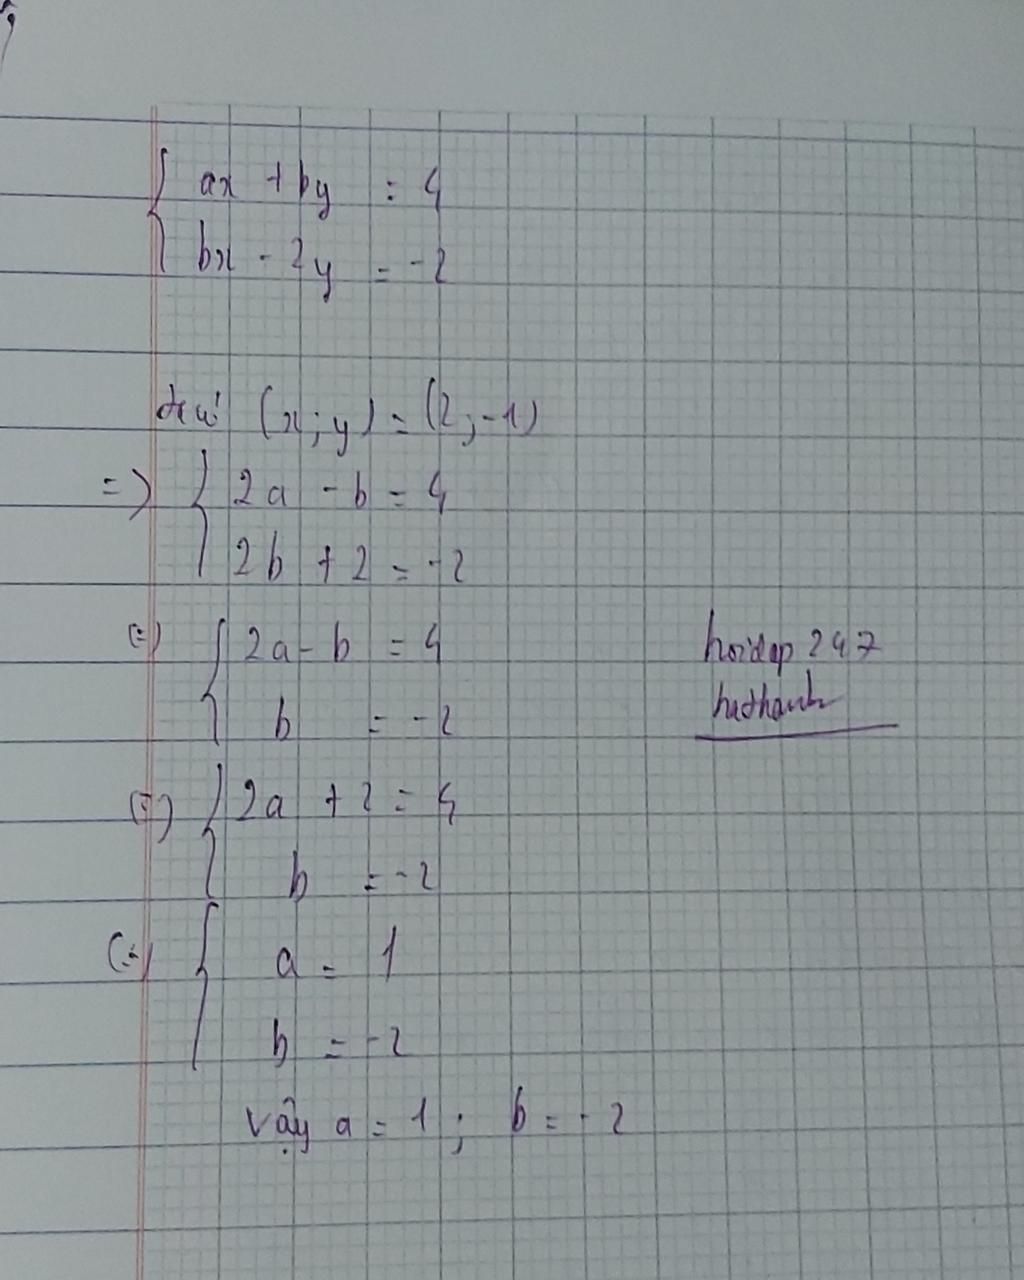 { ax + by = 4
bx - 2y = -2
(x; y) = (2; -1)
=> { 2a - b = 4
2b + 2 = -2
(=) { 2a - b = 4
b = -2
(=) { 2a + 2 = 4
b = -2
(=) { a = 1
b = -2
Vậy a = 1; b = -2
hoidap 247